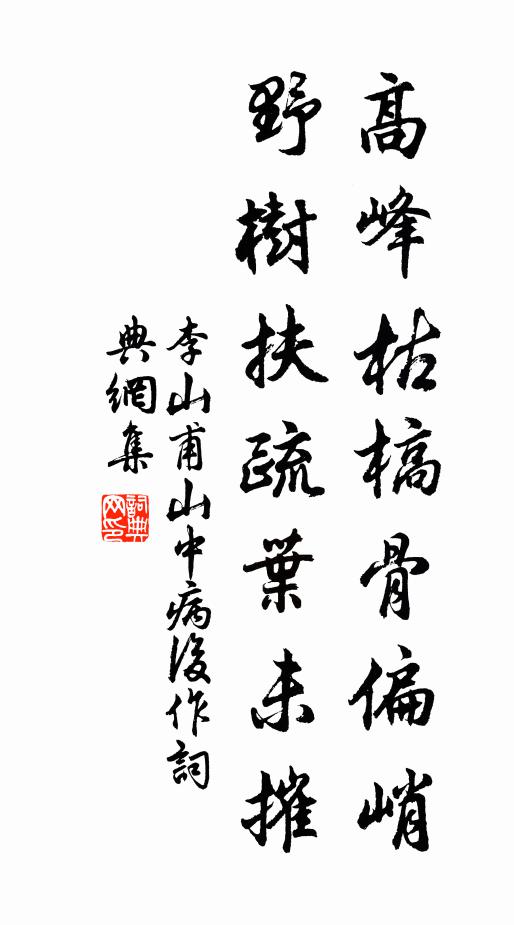 高峰枯槁骨偏峭
野樹扶疏葉未摧
李山甫山中病後作詞
典網集
詞典
网印